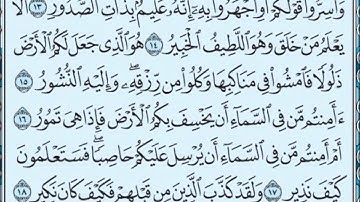 وَأَسِرُّوا۟ قَوْلَكُمْ أَوِ ٱجْهَرُوا۟ بِهِۦٓ إِنَّهُۥ عَلِيمٌۢ بِذَاتِ ٱلصُّدُورِ ١٣ أَلَا
يَعْلَمُ مَنْ خَلَقَ وَهُوَ ٱللَّطِيفُ ٱلْخَبِيرُ ١٤ هُوَ ٱلَّذِى جَعَلَ لَكُمُ ٱلْأَرْضَ
ذَلُولًا فَٱمْشُوا۟ فِى مَنَاكِبِهَا وَكُلُوا۟ مِن رِّزْقِهِۦ وَإِلَيْهِ ٱلنُّشُورُ
١٥ ءَأَمِنتُم مَّن فِى ٱلسَّمَآءِ أَن يَخْسِفَ بِكُمُ ٱلْأَرْضَ فَإِذَا هِىَ تَمُورُ
١٦ أَمْ أَمِنتُم مَّن فِى ٱلسَّمَآءِ أَن يُرْسِلَ عَلَيْكُمْ حَاصِبًا فَسَتَعْلَمُونَ
كَيْفَ نَذِيرِ ١٧ وَلَقَدْ كَذَّبَ ٱلَّذِينَ مِن قَبْلِهِمْ فَكَيْفَ كَانَ نَكِيرِ ١٨